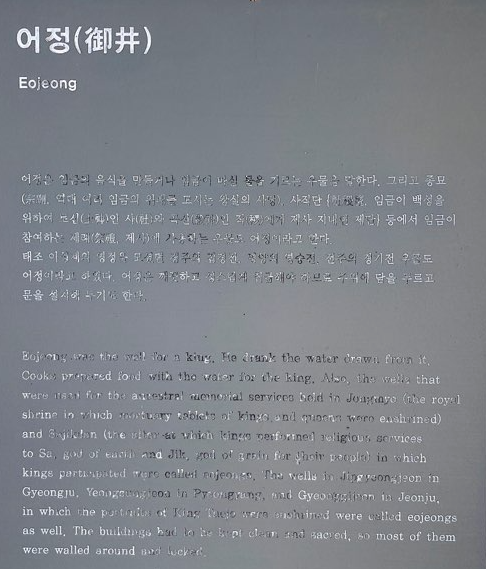 어정(御井)
Eojeong
어정은 임금의 음식을 만들거나 임금이 마실 물을 기르는 우물을 말한다. 그리고 종묘
역대 여러 임금의 위패를 모시는 왕실의 사당, 사직단 임금이 백성을
위하여 토신(土神)인 사(社)와 곡신(穀神)인 에게 제사 지내던 제단) 등에서 임금이
참여하는 제사에 우물도 어정이라고 한다.
태조 이성계의 경주의 집경전, 평양의 영숭전, 전주의 경기전 우물도
어정이라고 하였다. 어정은 하므로 주위에 담을 두르고
문을 설치해 한다.
Eojeong was the well for a king. He drank the water drawn from it.
Cooks prepared food with the water for the king. Also, the wells that
were used for the ancestral memorial services held in Jongmyo (the royal
shrine in which mortuary tablets of kings and queens were enshrined)
and Sajikdan (the altar at which kings performed religious services
to Sa, god of earth and Jik, god of grain for their people) in which
kings participated were called eojeongs. The wells in Jipgyeongjeon in
Gyeongju, Yeongsungjeon in Pyeongyang, and Gyeonggijeon in Jeonju,
in which the portraits of King Taejo were enshrined were called eojeongs
as well. The buildings had to be kept clean and sacred, so most of them
were walled around and locked.